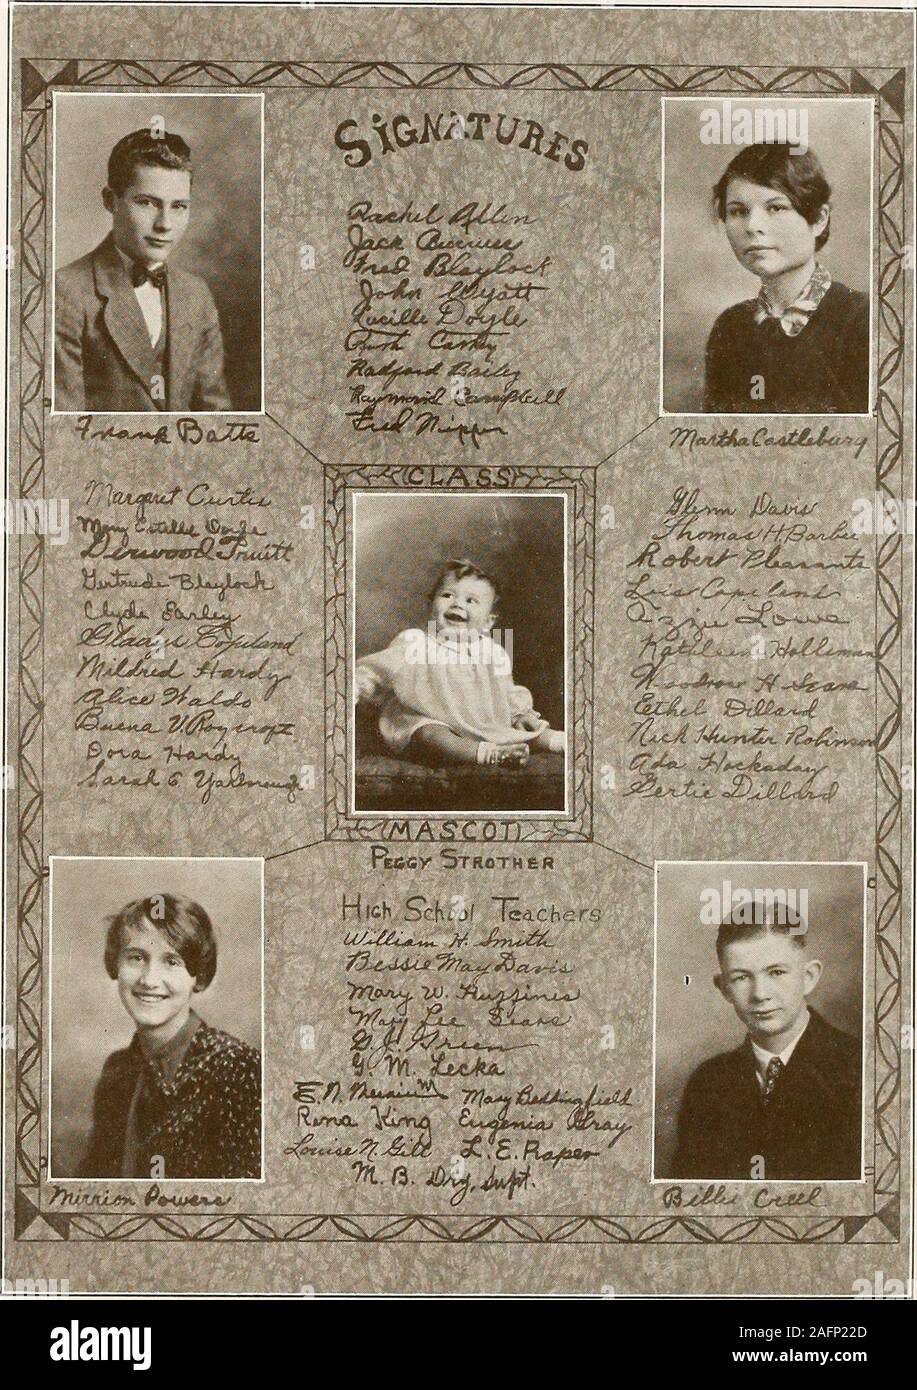 SIGNATURES
Rachel Allen
Jack Burrus
Fred Blaylock
John Wyatt
Lucille Doyle
Ruth
Radford Bailey
Raymond Campbell
Fred
Frank Batts
Martha Castlebury
CLASS
Margaret Curtis
Mary Estelle Doyle
Derwood Truitt
Gertrude Blaylock
Clyde Earley
Gladys Copeland
Mildred Hardy
Alice Waldo
Buena V. Roycroft
Dora Hardy
Sarah E
Glenn Davis
Thomas H. Barbee
Robert Pleasants
Lois Copeland
Azzie Lowe
Kathleen Holleman
Woodrow H. Sears
Ethel Dillard
Nick Hunter Robinson
Ada Hockaday
Gertie Dillard
MASCOT
PEGGY STROTHER
High School Teachers
William H. Smith
Bessie May Davis
Mary W. Huggines
Mary Lee Sears
G. J. Green
G. M. Lecka
E. N.
Mary Beddingfield
Rena King Eugenia Gray
Louise N. Gill L. E. Raper
M. B. Dry, Supt.
Mirrion Powers
Billie Creel
alamy
Image ID: 2AFP22D
www.alamy.com